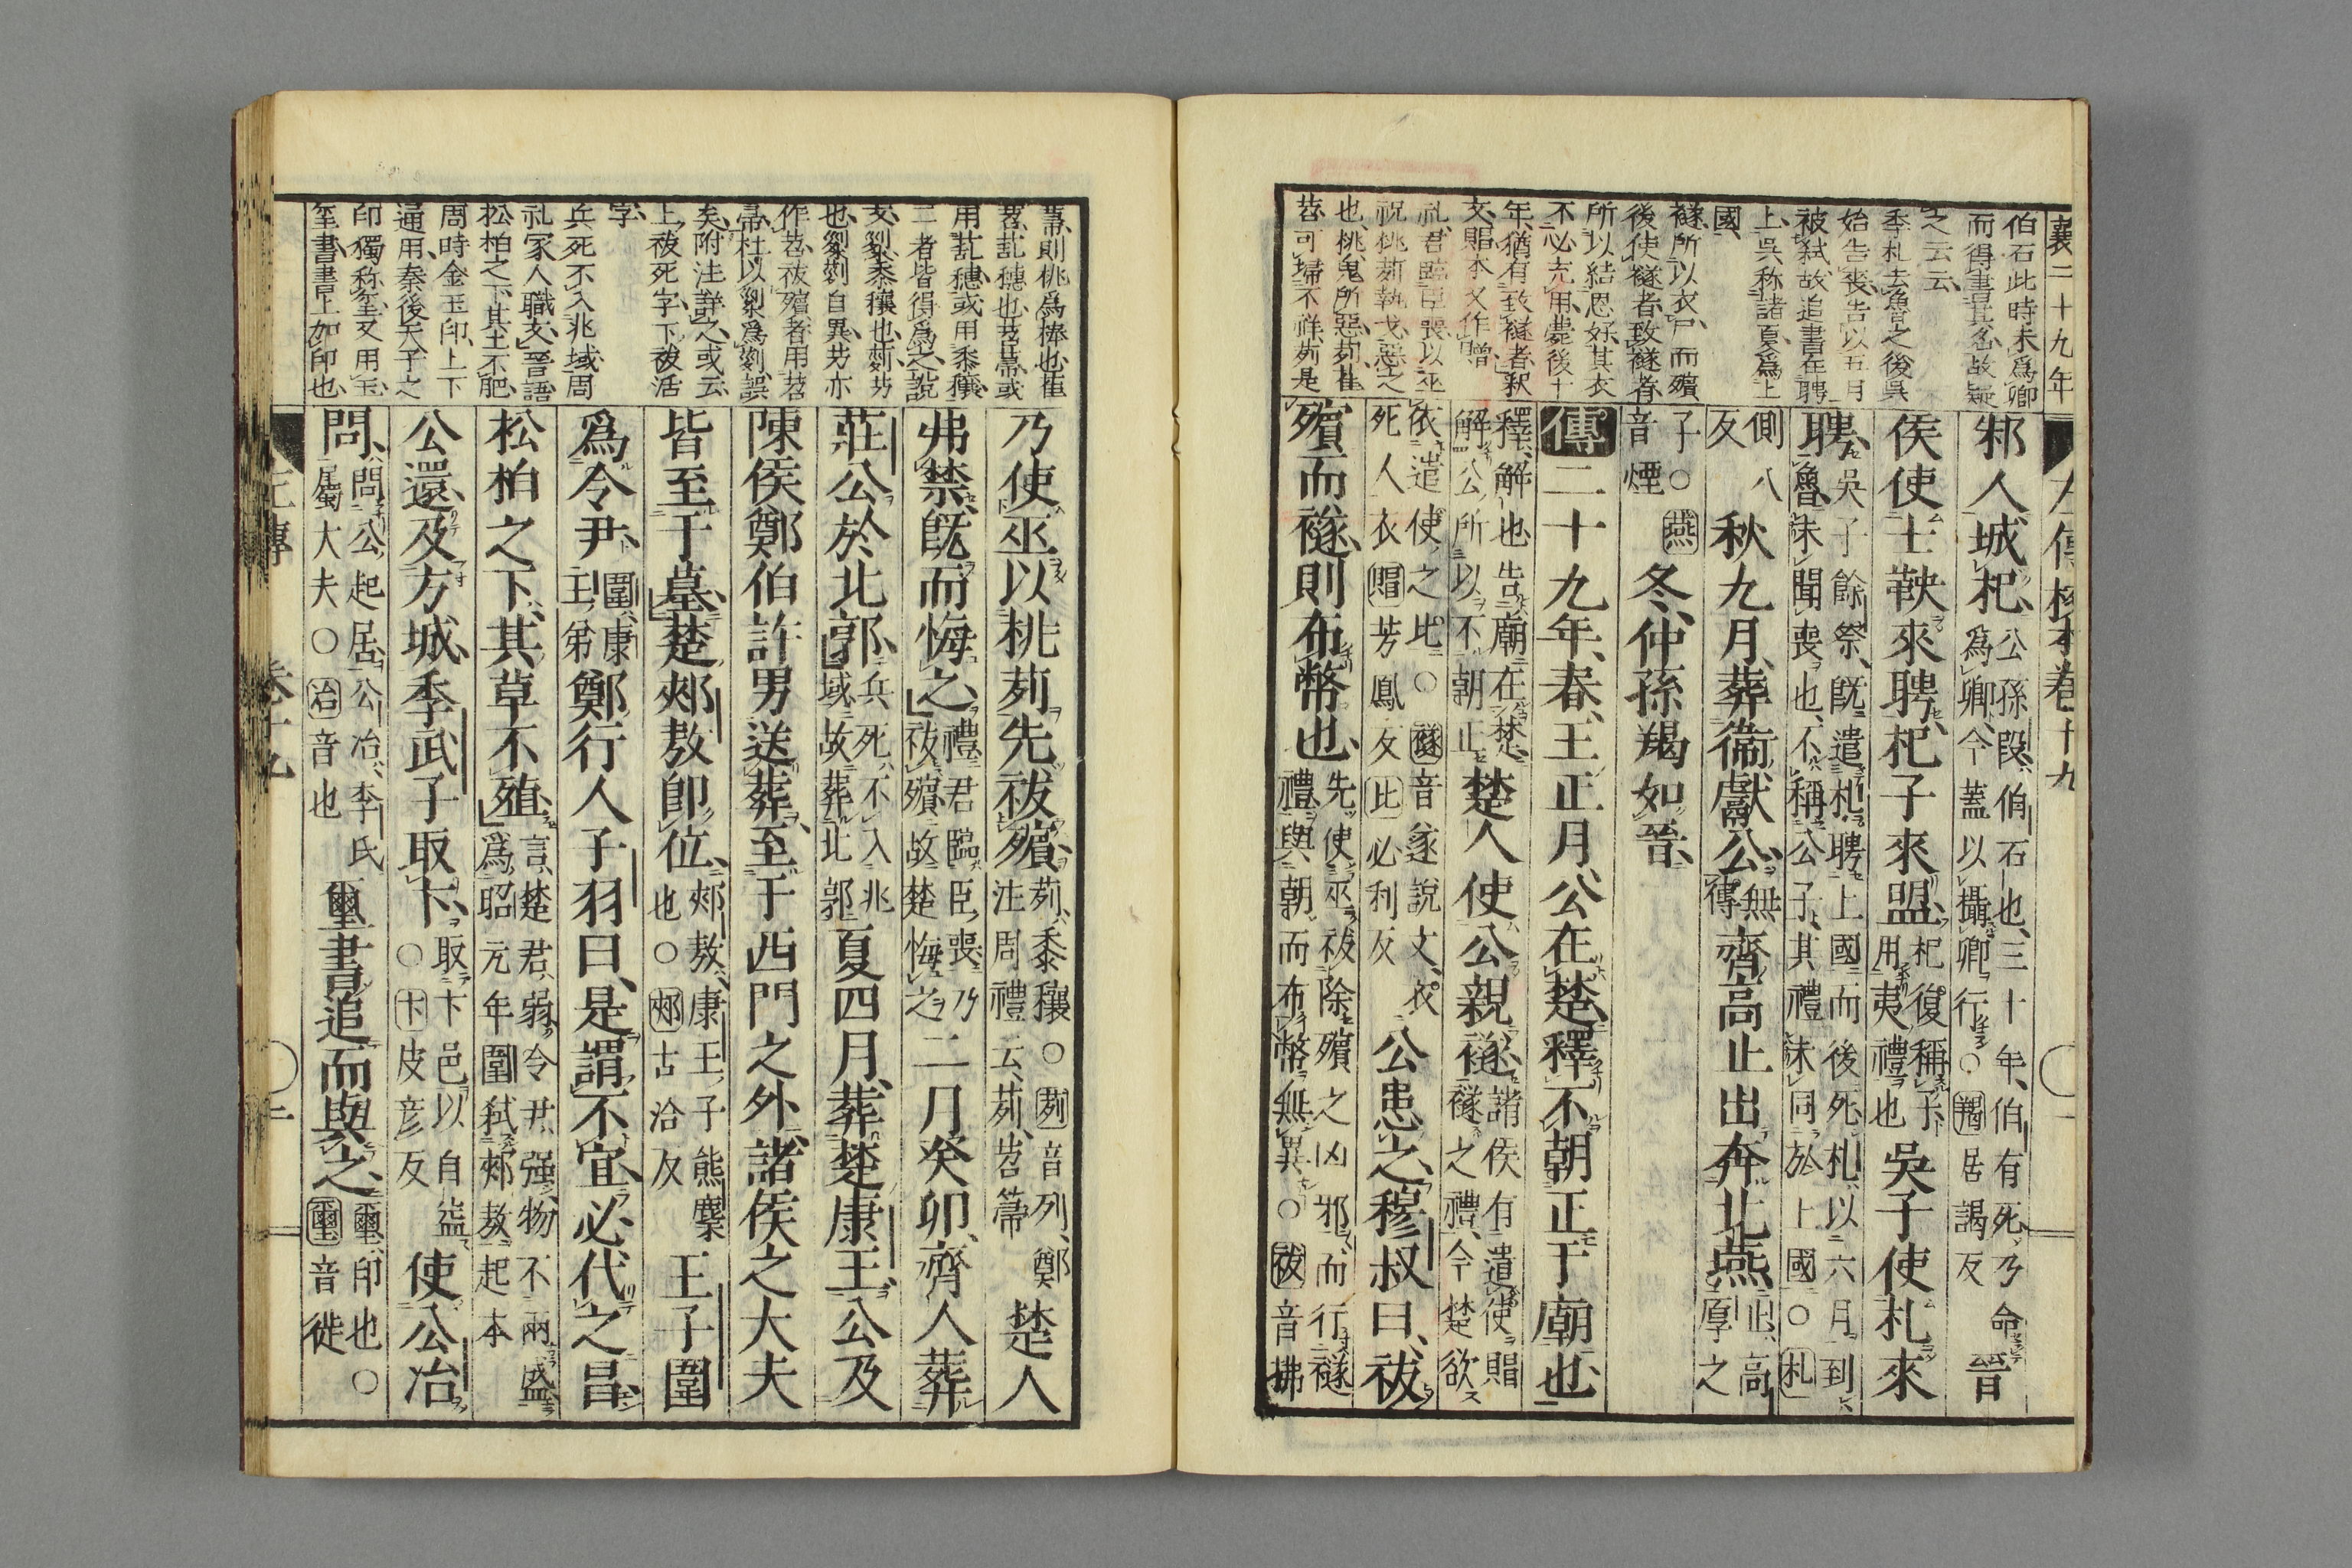 襄二十九年
左傳校本卷十九
伯石此時未爲卿
而得書其名故疑
之云云
季札去魯之後吳
始告喪告以五月
被弑故追書在聘
上吳称諸夏爲上
國
襚所以衣尸而殯
後使襚者致襚者
所以結恩好其衣
不必充用葬後十
年猶有致襚者釈
文賵本又作贈
礼君臨臣喪以巫
祝桃茢執戈惡之
也桃鬼所惡茢萑
苕可埽不祥茢是
邾人城杞公孫段伯石也三十年伯有死乃命
爲卿今蓋以攝卿行○羯居謁反晉
侯使士鞅來聘杞子來盟杞復稱子
用夷禮也吳子使札來
聘吳子餘祭既遣札聘上國而後死札以六月到
魯未聞喪也不稱公子其禮未同於上國○札
側八
反秋九月葬衞獻公無
傳齊高止出奔北燕止高
厚之
子○燕
音煙冬仲孫羯如晉
傳二十九年春王正月公在楚釋不朝正于廟也
釋解也告廟在楚
解公所以不朝正楚人使公親襚諸侯有遣使賵
襚之禮今楚欲
依遣使之比○襚音遂說文衣
死人衣賵芳鳳反比必利反公患之穆叔曰祓
殯而襚則布幣也先使巫祓除殯之凶邪而行襚
禮與朝而布幣無異○祓音拂
乃使巫以桃茢先祓殯茢黍穰○茢音列鄭
注周禮云茢苕箒楚人
弗禁既而悔之禮君臨臣喪乃
祓殯故楚悔之二月癸卯齊人葬
莊公於北郭兵死不入兆
域故葬北郭夏四月葬楚康王公及
陳侯鄭伯許男送葬至于西門之外諸侯之大夫
皆至于墓楚郟敖卽位郟敖康王子熊麇
也○郟古洽反王子圍
爲令尹圍康
王弟鄭行人子羽曰是謂不宜必代之昌
松柏之下其草不殖言楚君弱令尹强物不兩盛
爲昭元年圍弑郟敖起本
公還及方城季武子取卞取卞邑以自益
○卞皮彥反使公冶
問問公起居公冶季氏
屬大夫○冶音也璽書追而與之璽印也○
璽音徙
箒則桃爲棒也萑
苕䕸穗也茢箒或
用䕸穗或用黍穰
二者皆得爲之説
文䅀黍穰也茢芀
也䅀茢自異芀亦
作苕祓殯者用苕
帚杜以䅀爲茢誤
矣附注詳之或云
上祓死字下祓活
字
兵死不入兆域周
礼冢人職文晉語
松柏之下其土不肥
周時金玉印上下
通用秦後天子之
印獨称璽又用玉
璽書書上加印也
左傳
卷十九
二